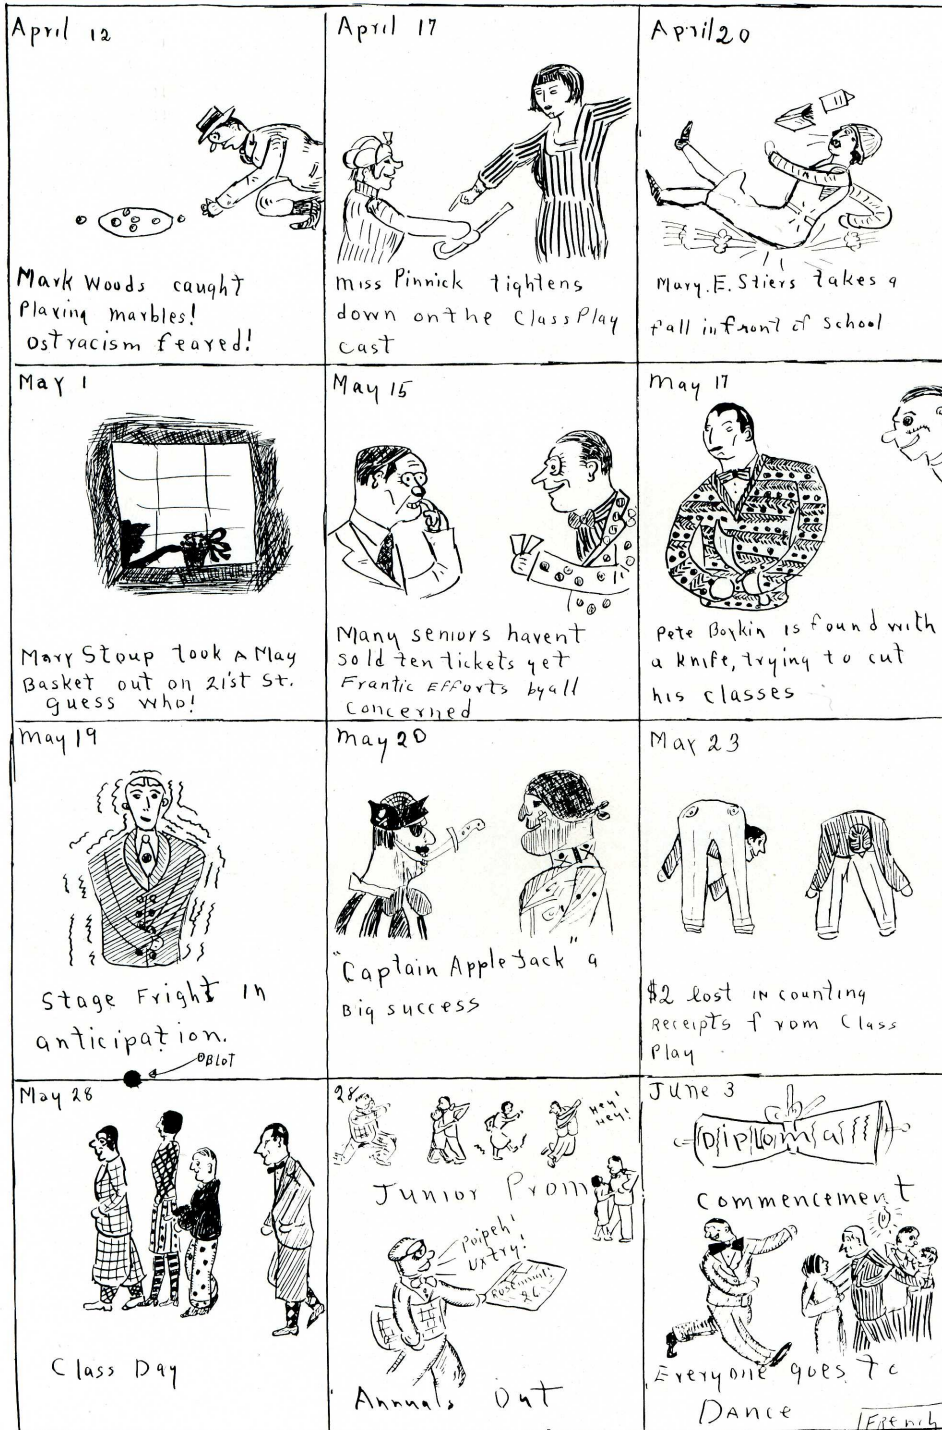 April 12
Mark Woods caught
Playing marbles!
Ostracism feared!
April 17
Miss Pinnick tightens
down on the Class Play
cast
April 20
Mary. E. Stiers takes a
fall in front of School
May 1
Mary Stoup took A May
Basket out on 21'st St.
guess who!
May 15
Many seniors havent
sold ten tickets yet
Frantic Efforts by all
concerned
May 17
Pete Boykin is found with
a knife, trying to cut
his classes
May 19
Stage Fright In
anticipation.
BLOT
May 20
"Captain Apple Jack" a
Big success
May 23
$2 lost in counting
Receipts from Class
Play
May 28
Class Day
28
Hey!
Hey!
Junior Prom
Poipeh!
Uxtry!
26
Annuals Out
June 3
Diploma
Commencement
Everyone goes to
Dance
French